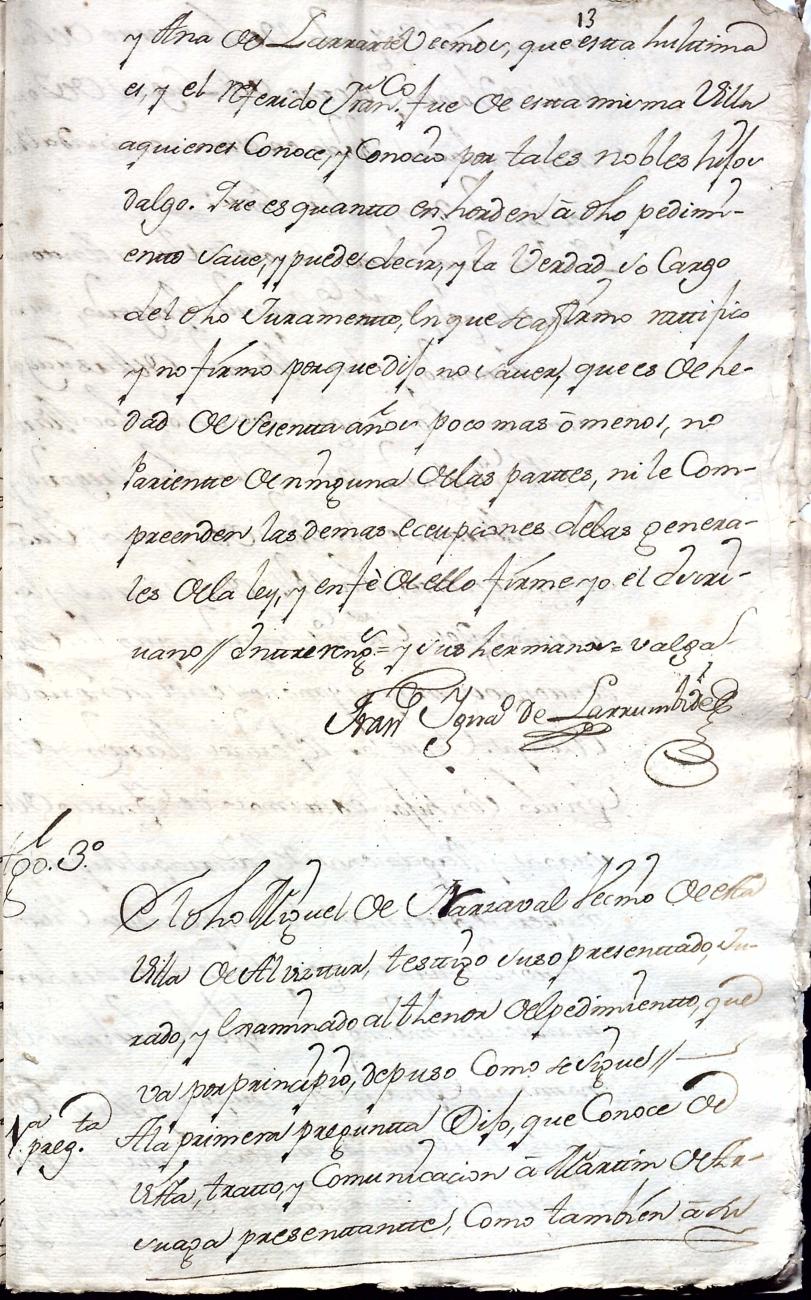 13
y Ana de Larrarte Vecinos, que esta hultima
es, y el referido Franco. fue de esta misma Villa
aquienes Conoce, y Conocio por tales nobles hijos
dalgo. Que es quantto en horden â dho pedimi-
entto save, y puede decir, y la Verdad so Cargo
del dho Juramentto, en que se afirmo rattifico
y no firmo porque dijo no saver, que es de he-
dad de sesentta años poco mas ô menos, no
Pariente de ninguna de las parttes, ni le Com-
preenden las demas ecepciones de las genera-
les de la ley, y en fè de ello firme yo el escri-
uano // Enttrereng.s = y sus hermanos = valga
Fran.co Ygna.o de Larrumbide
tgo. 3.o
El dho Miguel de Narzaval Vecino de esta
Villa de Alviztur, testtigo suso presenttado, Ju-
rado, y examinado al thenor del pedimientto, que
va por principio, depuso Como se sigue //
1.a preg.ta
A la primera preguntta Dijo, que Conoce de
vistta, tratto, y Comunicacion â Martin de
suaga presenttantte, Como tambien â